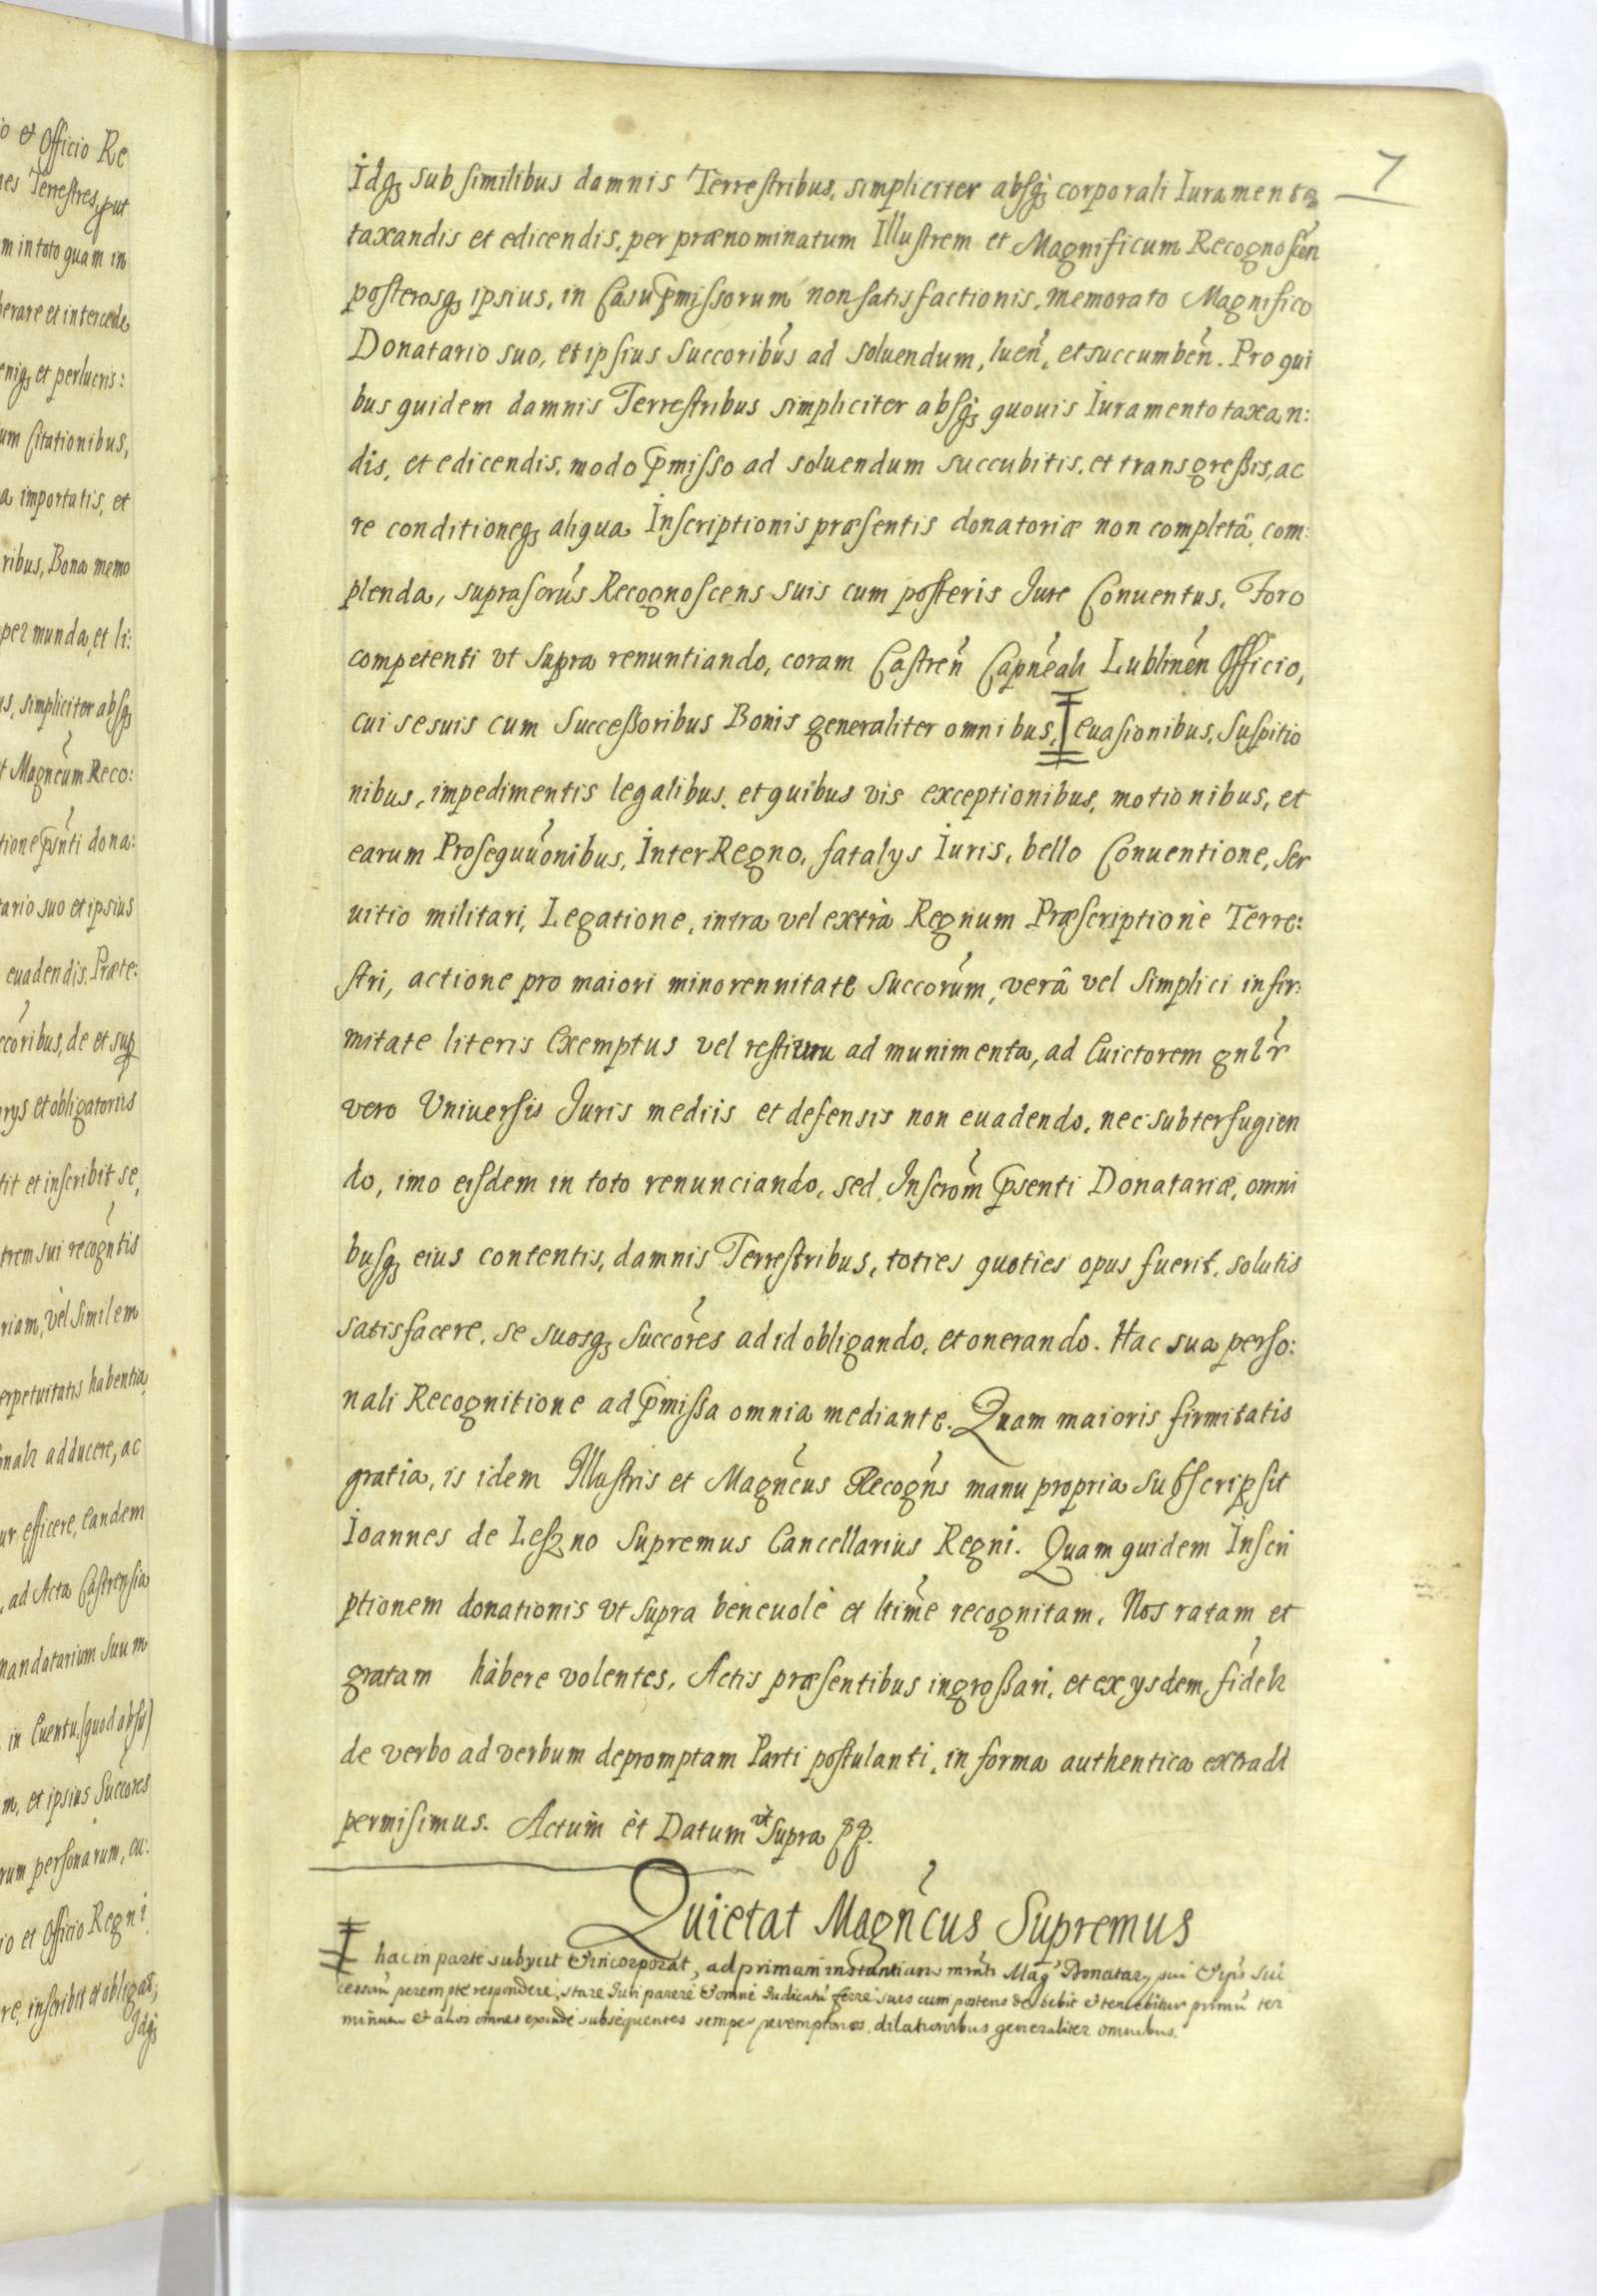 o et Officio Re
es Terrestres, put
m in toto quam in
erare et intercede
eniq3 et perlucris:
um Citationibus,
a importatis, et
ribus, Bona memo
per munda, et li:
us, simpliciter absq3
t Magncum Reco:
tione psnti dona:
tario suo et ipsius
euadendis. Præte:
ccoribus, de et sup
rys et obligatoriis
tit et inscribit se,
trem sui recogntis
riam, vel similem
erpetuitatis habentia
adducere, ac
ur efficere, eandem
, ad Acta Castrensia
mandatarium suum
in Euentu (quod absit)
m, et ipsius Succores
rum personarum, eu:
io et Officio Regni
re, inscribit et obligat,
Idq3
7
Idq3 sub similibus damnis Terrestribus, simpliciter absq3 corporali Iuramento
taxandis et edicendis, per prænominatum Illustrem et Magnificum Recognoscen
posterosq3 ipsius, in Casu pmissorum non satisfactionis, memorato Magnifico
Donatario suo, et ipsius Succoribus ad soluendum, luen, et succumben. Pro qui
bus quidem damnis Terrestribus simpliciter absq3 quouis Iuramento taxan:
dis, et edicendis, modo pmisso ad soluendum succubitis, et transgreßis, ac
re conditioneq3 aliqua Inscriptionis præsentis donatoriæ non completâ, com:
plenda, suprascrus Recognoscens suis cum posteris Jure Conuentus, Foro
competenti vt supra renuntiando, coram Castren Capneali Lublinen Officio,
cui se suis cum Succeßoribus Bonis generaliter omnibus, ‡ euasionibus, Suspitio
nibus, impedimentis legalibus, et quibus vis exceptionibus, motionibus, et
earum Prosequuonibus, InterRegno, fatalys Iuris, bello Conuentione, Ser
uitio militari, Legatione, intra vel extrà Regnum Præscriptione Terre:
stri, actione pro maiori minorennitate Succorum, verâ vel simplici infir:
mitate literis Exemptus vel restium ad munimenta, ad Euictorem gnlr
vero Vniuersis Juris mediis et defensis non euadendo, nec subterfugien
do, imo eisdem in toto renunciando, sed Inscrom psenti Donatariæ, omni
busq3 eius contentis, damnis Terrestribus, toties quoties opus fuerit, solutis
satisfacere, se suosq3 Succores ad id obligando, et onerando. Hac sua perso:
nali Recognitione ad pmissa omnia mediante. Quam maioris firmitatis
gratia, is idem Illustris et Magncus Recogns manu propria subscripsit
Ioannes de Leszno Supremus Cancellarius Regni. Quam quidem Inscri
ptionem donationis vt supra beneuolè et ltime recognitam, Nos ratam et
gratam habere volentes, Actis præsentibus ingroßari, et ex ysdem, fideli
de verbo ad verbum depromptam Parti postulanti, in forma authentica extradi
permisimus. Actum èt Datum vt supra pp.
Quietat Magncus Supremus
‡ hac in parte subycit & incorporat, ad primam instantiam mrati Mag Donatary sui & ips suc
cessru perempte respondere, stare Juri parere & omne Iudicatu ferre suis cum posteris debebit & tenebitur primu ter
minum et alios omnes exinde subsequentes semper peremptorios, dilationibus generaliter omnibus.